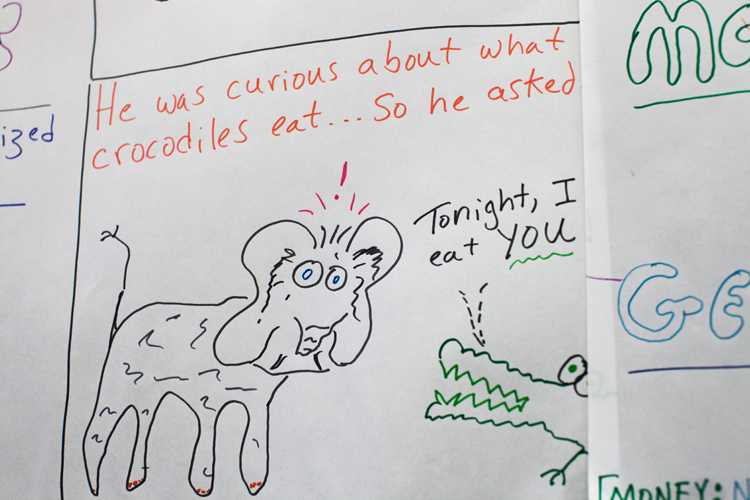 He was curious about what
crocodiles eat... So he asked
!
Tonight, I
eat YOU
ized
GE
[MONEY: